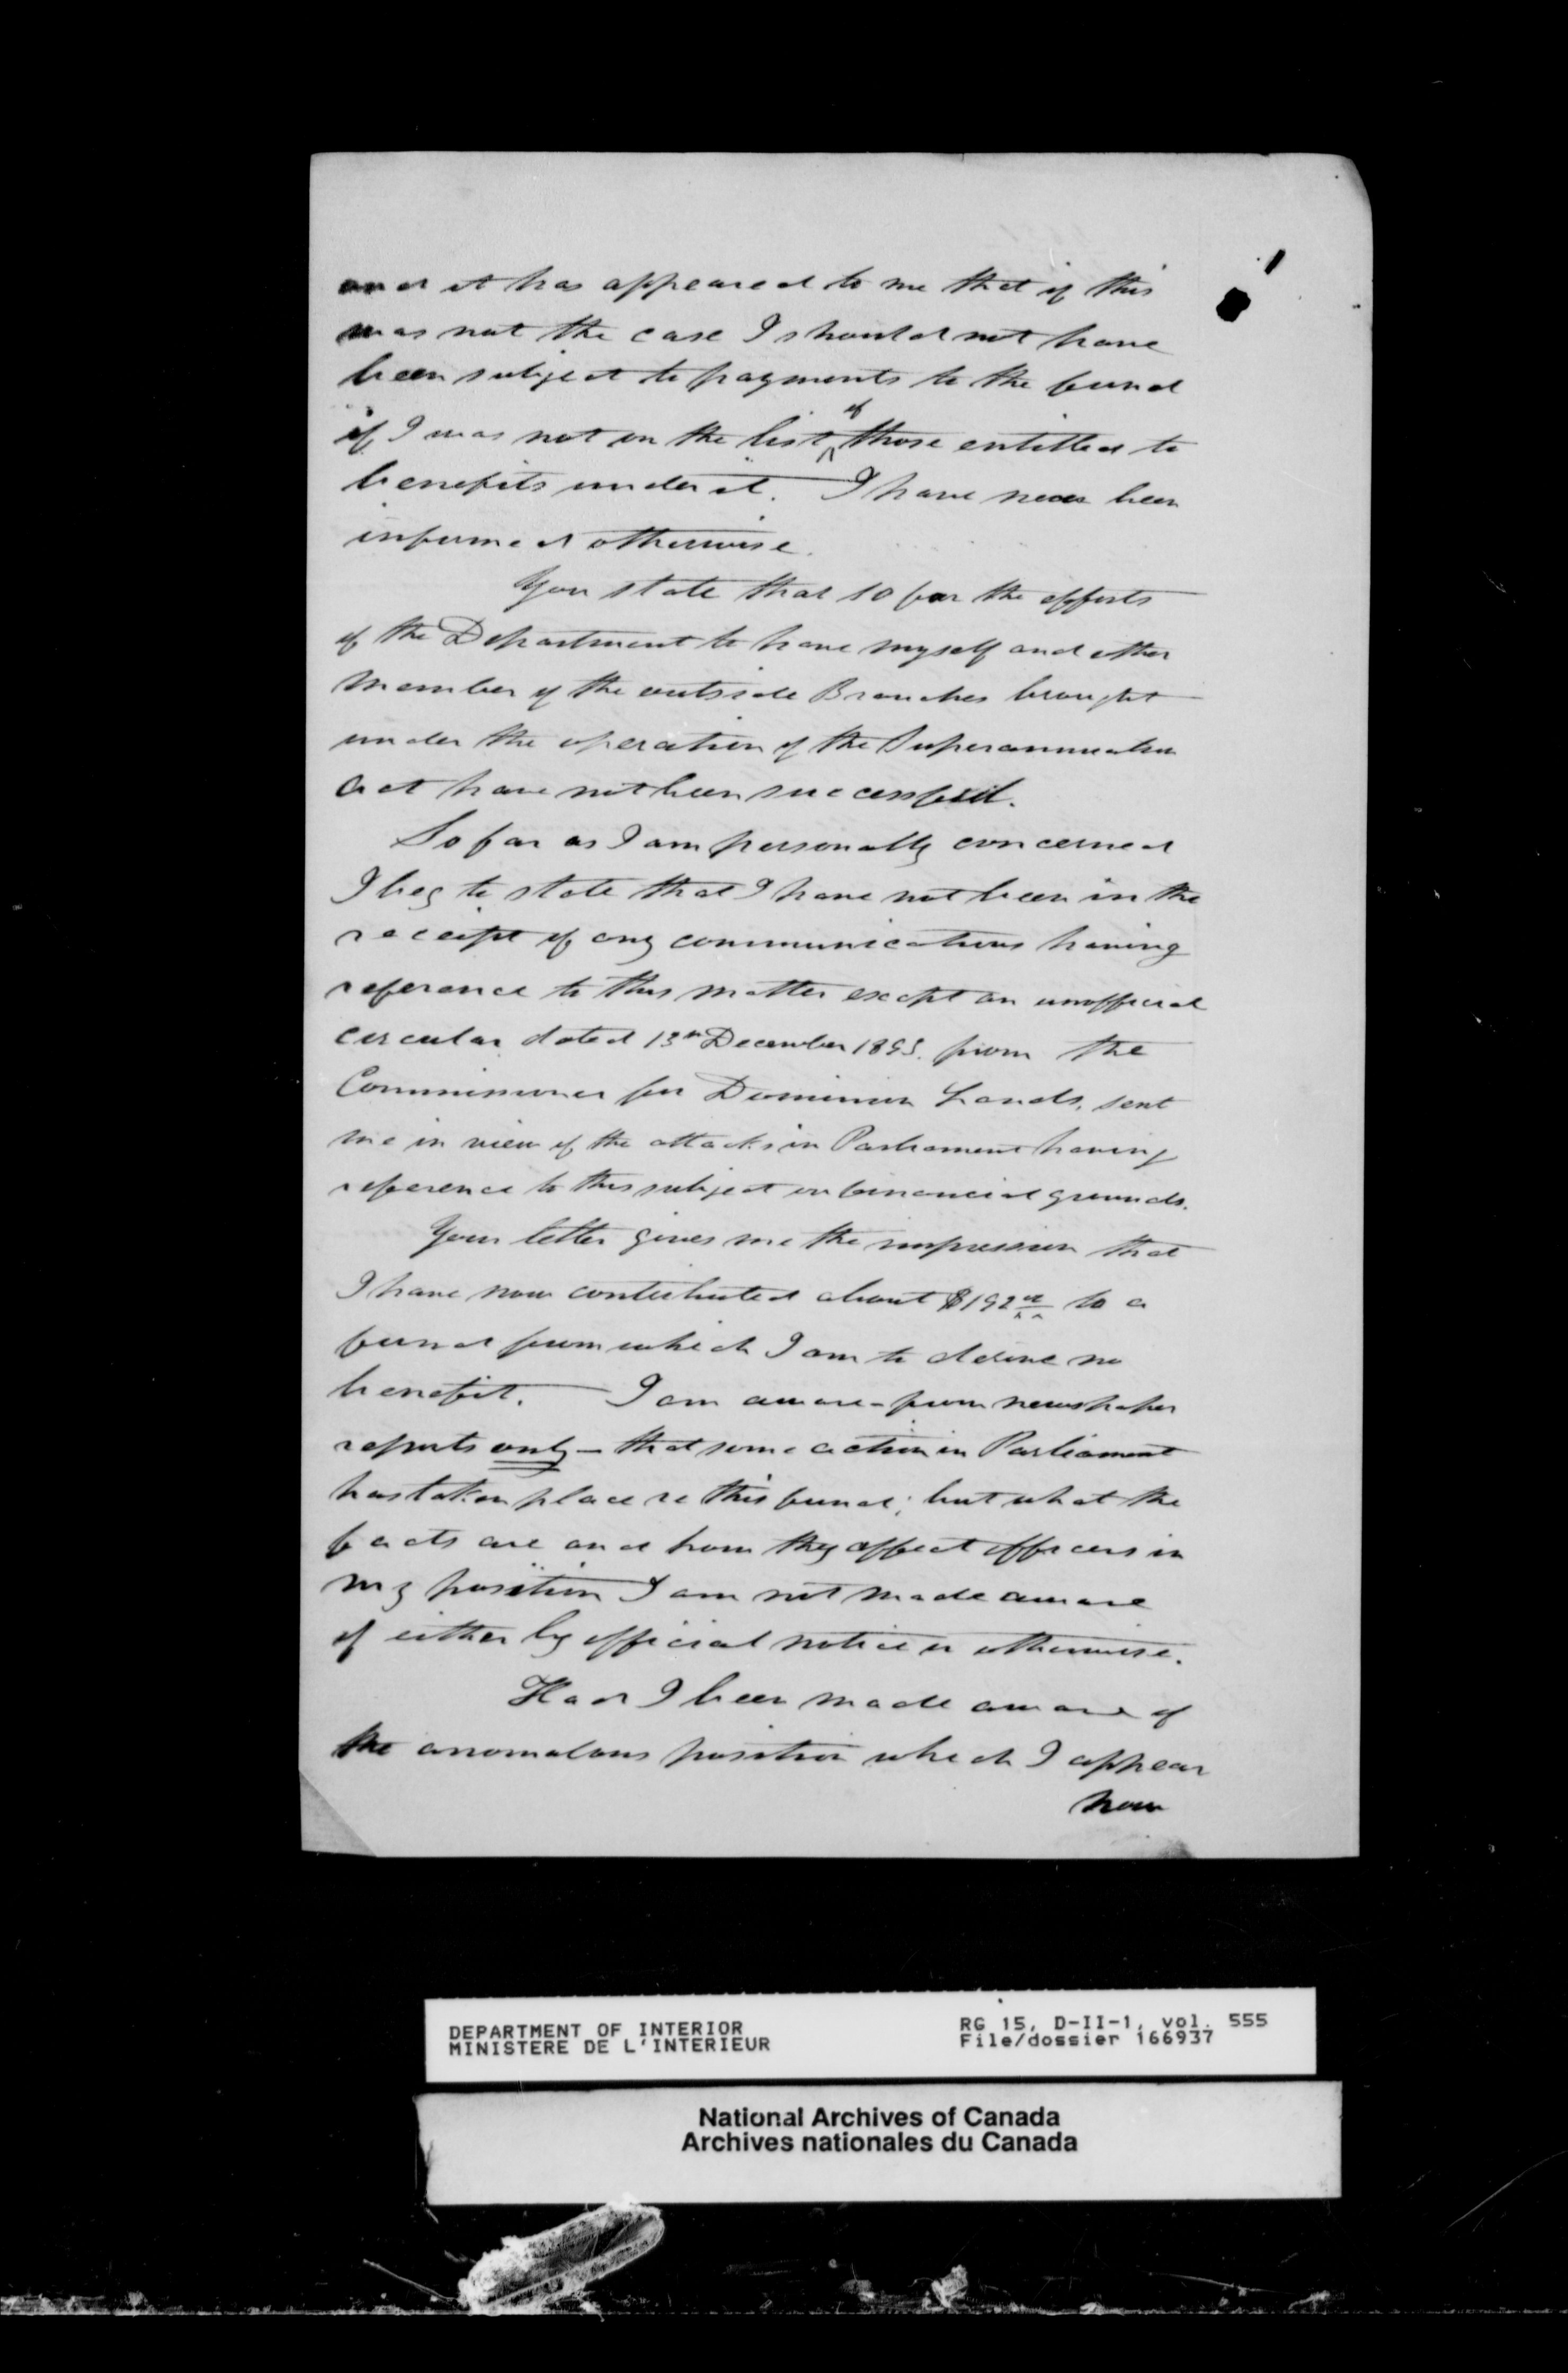 and it has appeared to me that if this
was not the case I should not have
been subject to payments to the fund
if I was not on the list of those entitled to
benefits under it. I have never been
informed otherwise.
You state that so far the efforts
of the Department to have myself and other
member of the outside Branches brought
under the operation of the Superannuation
Act have not been successful.
So far as I am personally concerned
I beg to state that I have not been in the
receipt of any communications having
reference to this matter except an unofficial
circular dated 13th December 1895. from the
Commissioner for Dominion Lands, sent
me in view of the attacks in Parliament having
reference to this subject on financial grounds.
Your letter gives me the impression that
I have now contributed about $192 to a
fund from which I am to derive no
benefit. I am aware - from newspaper
reports only - that some action in Parliament
has taken place re this fund; but what the
facts are and how they affect officers in
my position I am not made aware
of either by official notice or otherwise.
Had I been made aware of
the anomalous position which I appear
now
DEPARTMENT OF INTERIOR
MINISTERE DE L'INTERIEUR
RG 15, D-II-1, vol. 555
File/dossier 166937
National Archives of Canada
Archives nationales du Canada